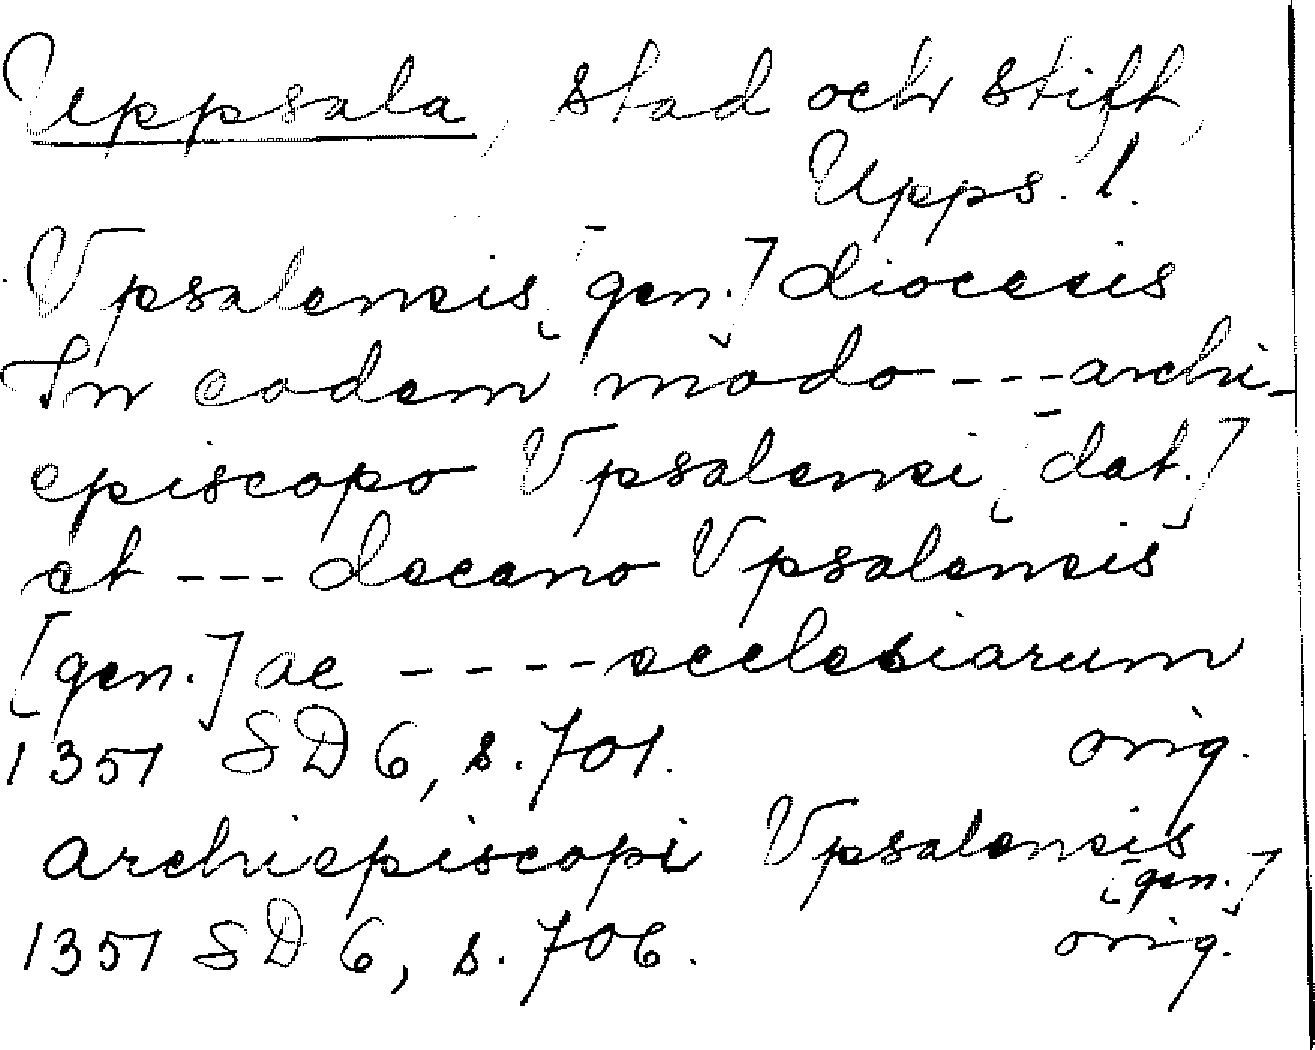 Uppsala, stad och stift,
Upps. l.
Vpsalensis [gen.] diocesis
In eodem modo --- archi-
episcopo Vpsalensi [dat.]
et --- decano Vpsalensis
[gen.] ae ---- ecclesiarum
1351 SD 6, s. 701. orig.
archiepiscopi Vpsalensis
[gen.]
1351 SD 6, s. 706. orig.